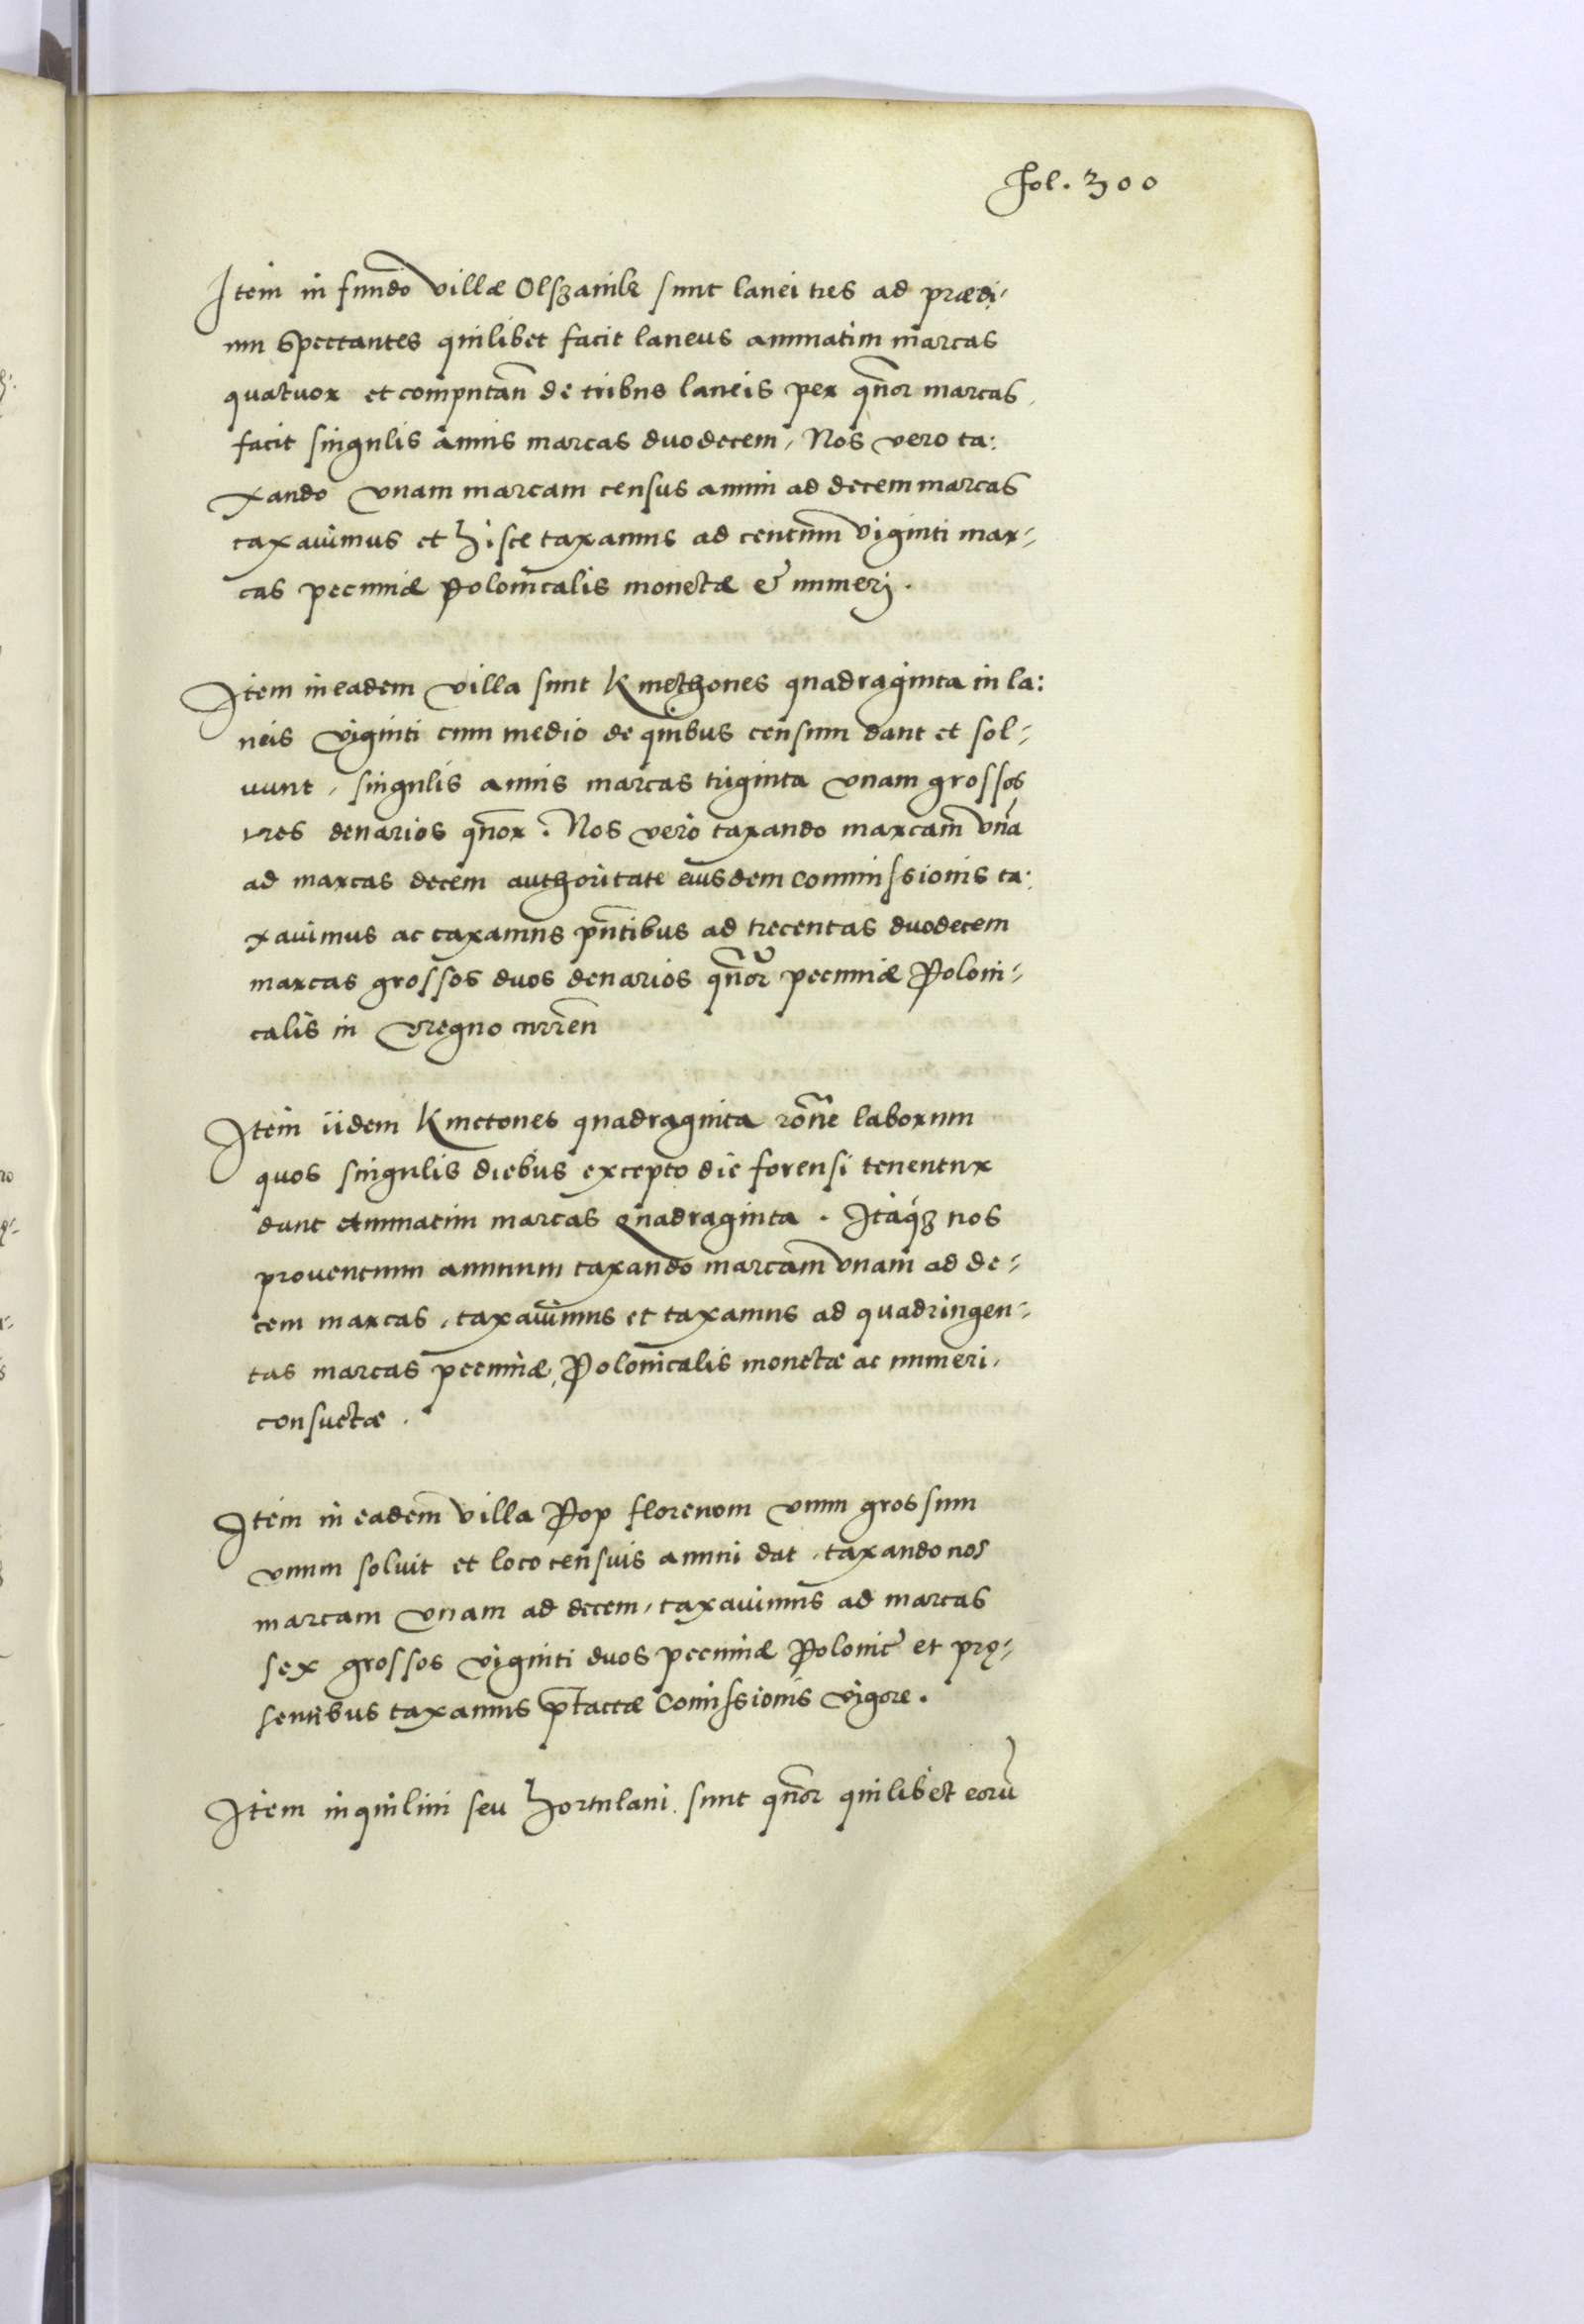 fol. 300
Item in fundo villæ Olszanik sunt lanei tres ad prædi-
um spectantes quilibet facit laneus annuatim marcas
quatuor et computan̄ de tribus laneis per qu̅or marcas
facit singulis annis marcas duodecem, Nos vero ta:
xando vnam marcam census annui ad decem marcas
taxauimus et hisce taxamus ad centum viginti mar-
cas pecuniæ Polonicalis monetæ & numeri.
Item in eadem villa sunt Kmethones quadraginta in la:
neis viginti cum medio de quibus censum dant et sol-
uunt, singulis annis marcas triginta vnam grossos
tres denarios qu̅or. Nos vero taxando marcam vnā
ad marcas decem authoritate eiusdem commissionis ta:
xauimus ac taxamus pn̅tibus ad trecentas duodecem
marcas grossos duos denarios qu̅or pecuniæ Poloni-
calis in regno curren̄
Item iidem Kmetones quadraginta ro̅ne laborum
quos singulis diebus excepto die forensi tenentur
dant annuatim marcas quadraginta. Itaqꝫ nos
prouentum annuum taxando marcam vnam ad de-
cem marcas, taxauimus et taxamus ad quadringen-
tas marcas pecuniæ, Polonicalis monetæ ac numeri,
consuetæ.
Item in eadem villa Pop florenom vnum grossum
vnum soluit et loco censuis annui dat, taxando nos
marcam vnam ad decem, taxauimus ad marcas
sex grossos viginti duos pecuniæ Polonic et prę-
sentibus taxamus p̅tactæ Comissionis vigore.
Item inquilini seu hortulani sunt qu̅or quilibet eorū